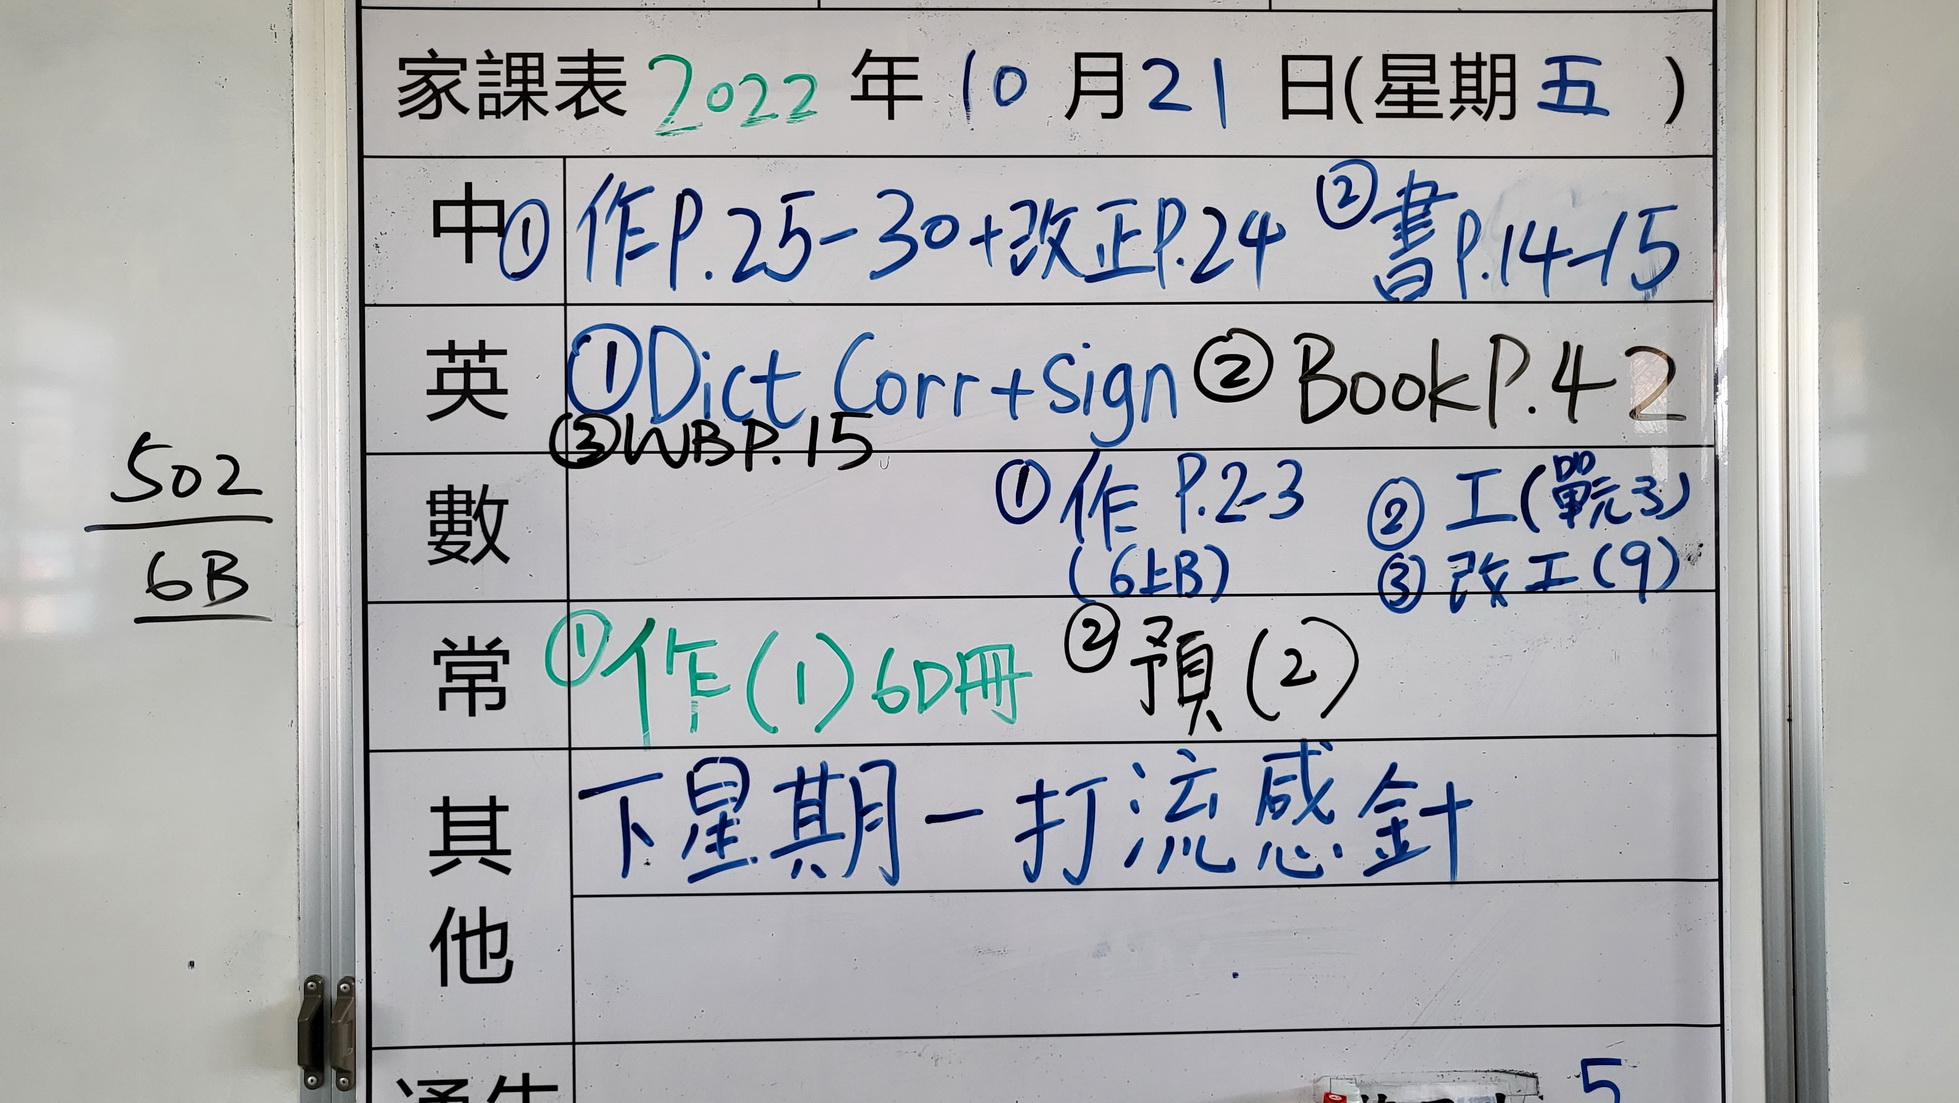 家課表 2022 年 10 月 21 日(星期 五 )
中 ① 作P.25-30+改正P.24 ② 書P.14-15
英 ① Dict Corr+sign ② Book P.42
③ WB P.15
502
6B
數 ① 作 P.2-3 ② 工(單元3)
(6上B) ③ 改工(9)
常 ① 作(1)6D冊 ② 預(2)
其他 下星期一打流感針
通告
5